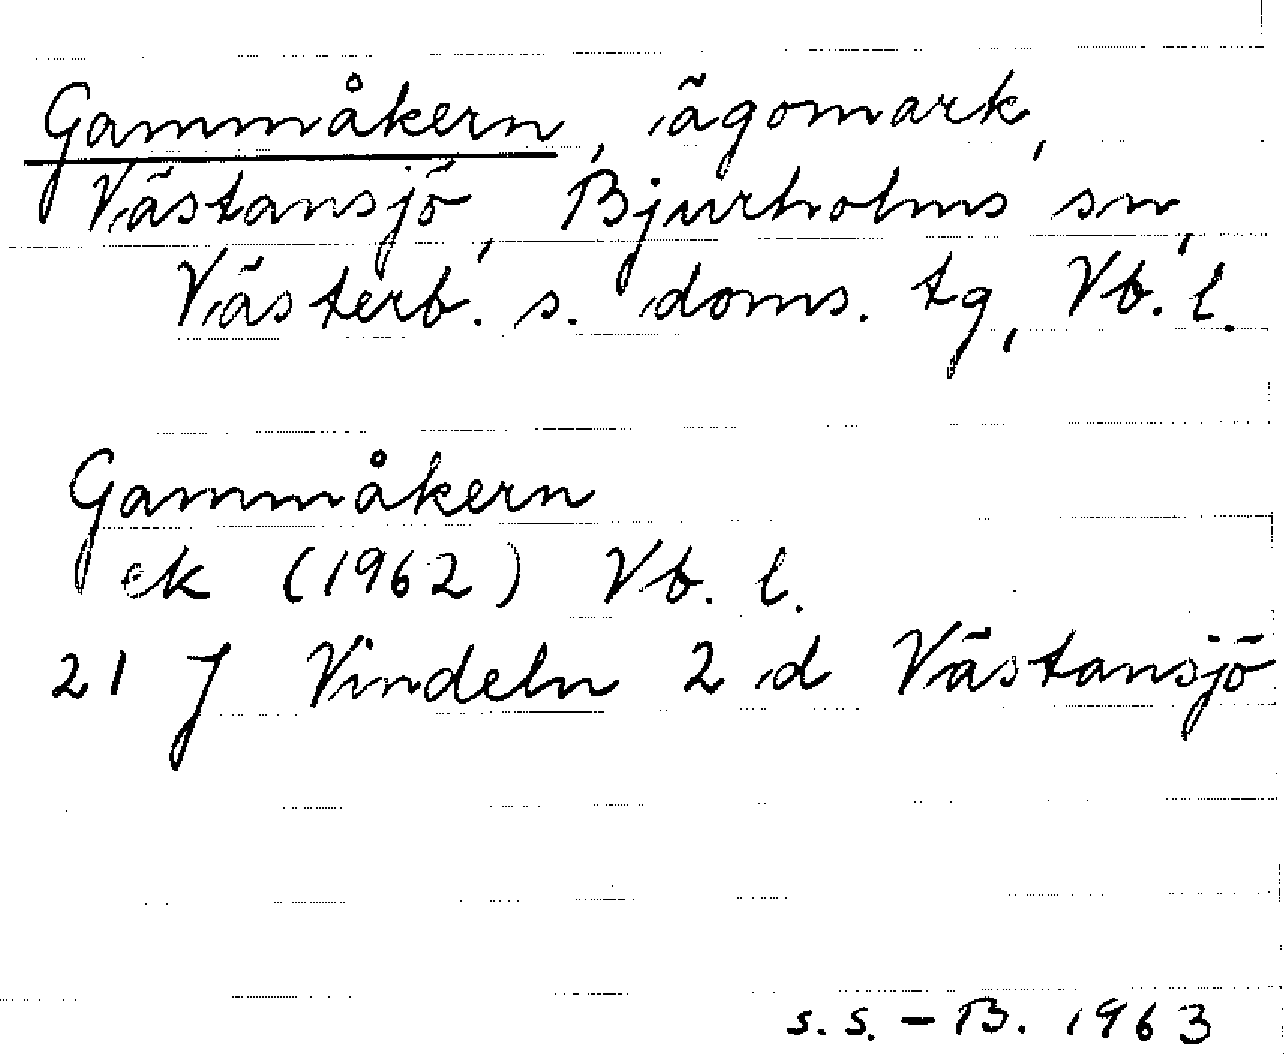 Gammåkern, ägomark,
Västansjö, Bjurholms sn,
Västerb. s. doms. tg, Vb. l.
Gammåkern
ek (1962) Vb. l.
21 J Vindeln 2 d Västansjö
s. s. – B. 1963